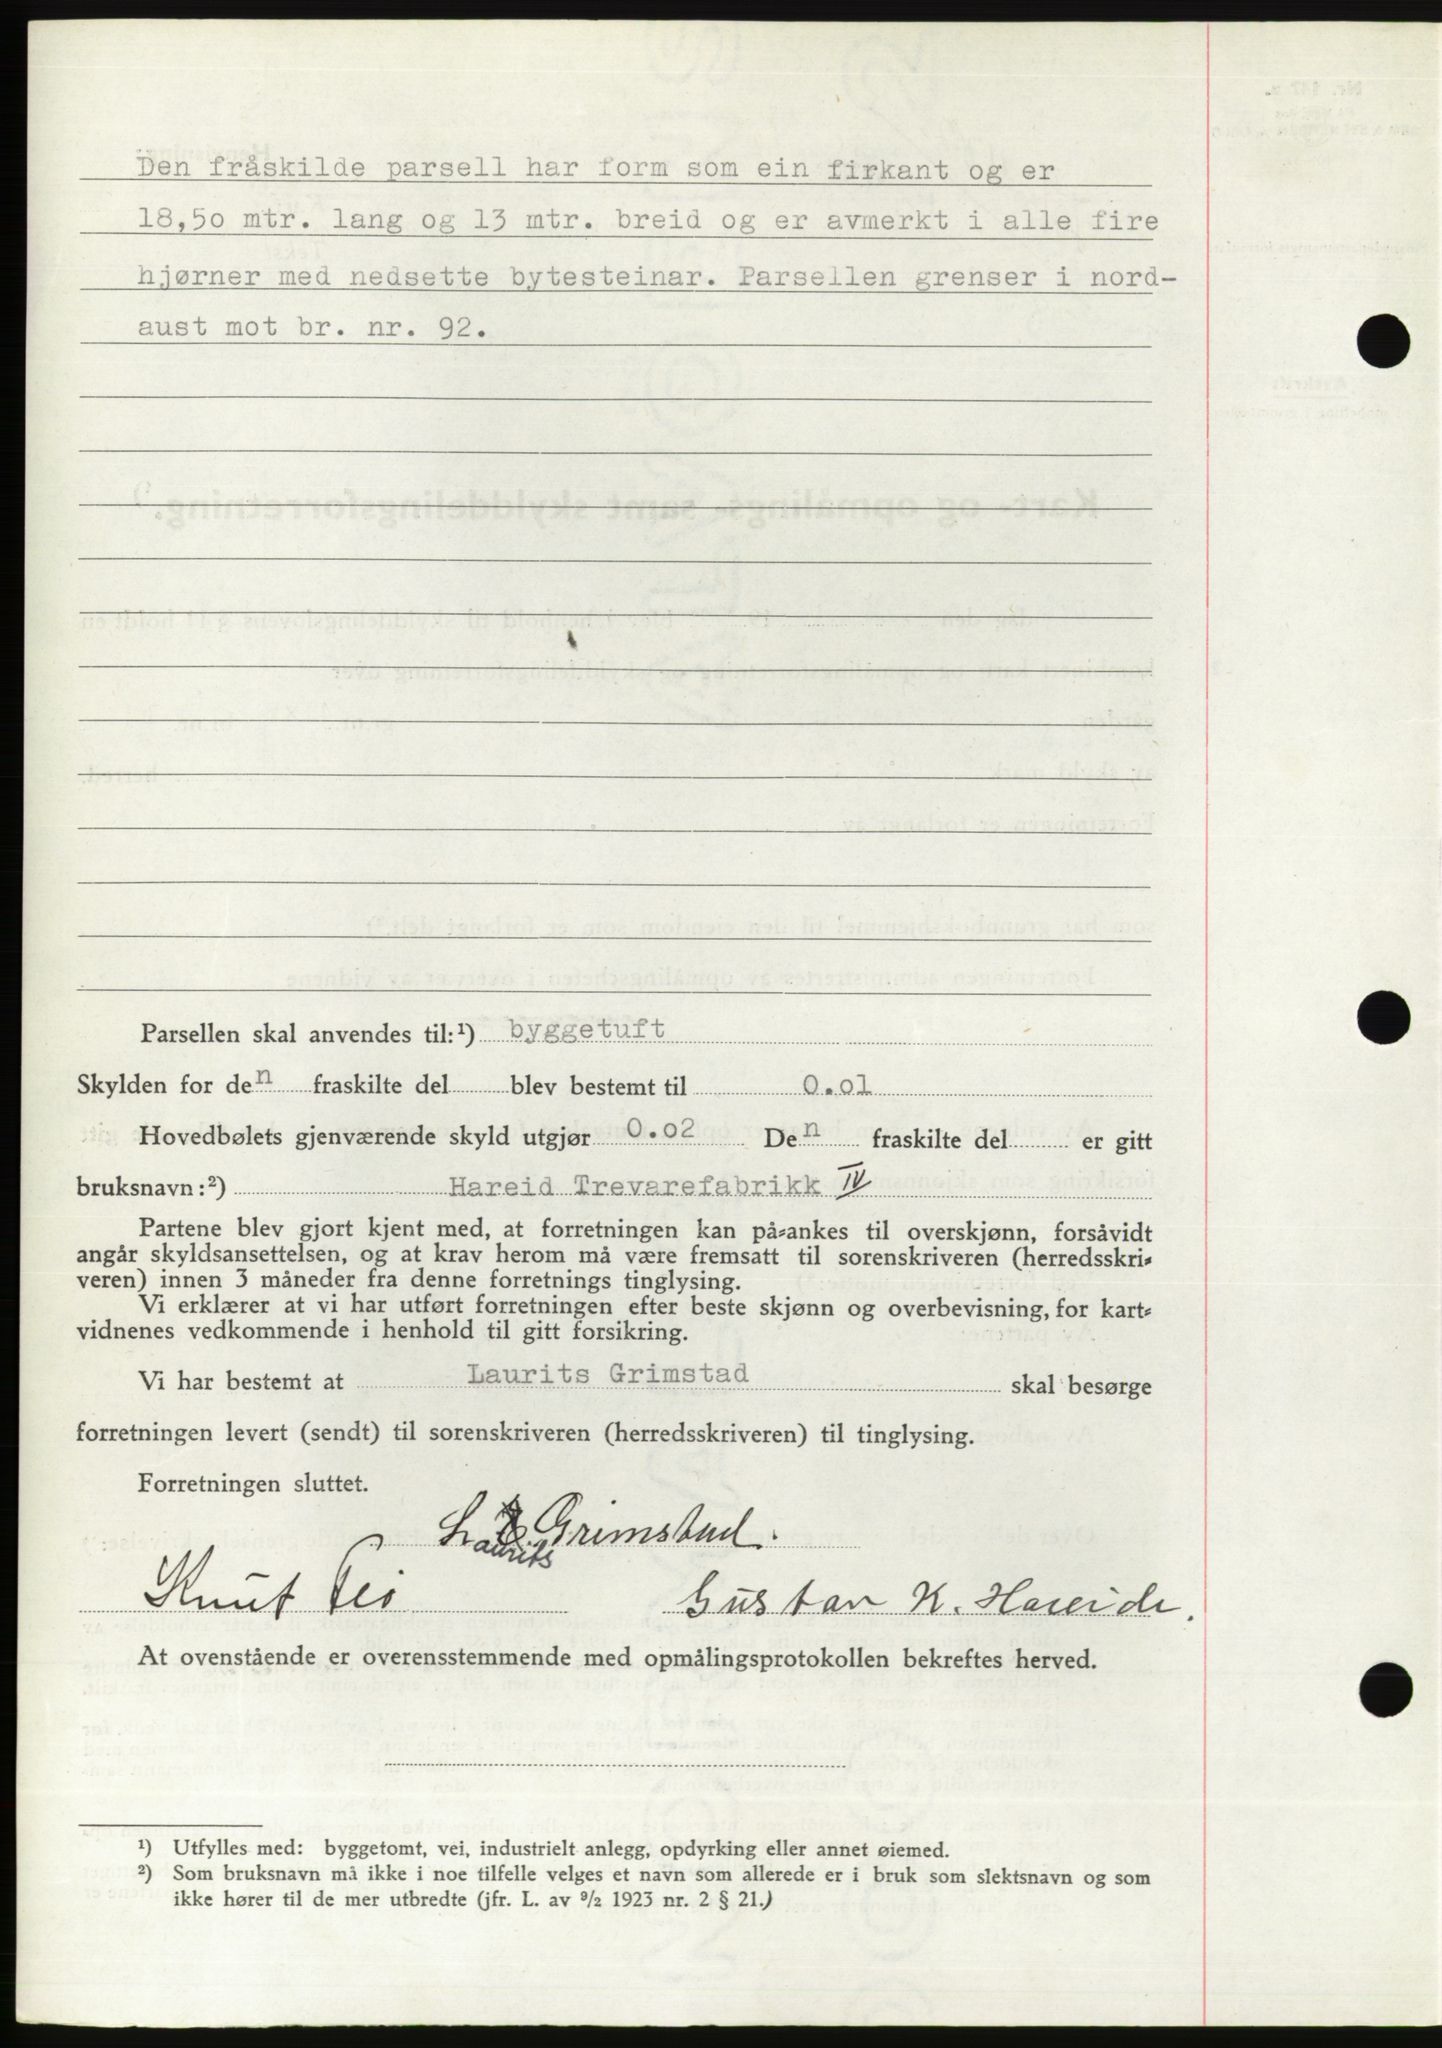 Den fråskilde parsell har form som ein firkant og er
18,50 mtr. lang og 13 mtr. breid og er avmerkt i alle fire
hjørner med nedsette bytesteinar. Parsellen grenser i nord-
aust mot br. nr. 92.
Kart- og opmålings- samt skylddelingsforretning.
Parsellen skal anvendes til:¹) byggetuft
Skylden for den fraskilte del blev bestemt til 0.01
Hovedbølets gjenværende skyld utgjør 0.02 Den fraskilte del er gitt
bruksnavn:²) Hareid Trevarefabrikk IV
Partene blev gjort kjent med, at forretningen kan på-ankes til overskjønn, forsåvidt
angår skyldsansettelsen, og at krav herom må være fremsatt til sorenskriveren (herredsskri-
veren) innen 3 måneder fra denne forretnings tinglysing.
Vi erklærer at vi har utført forretningen efter beste skjønn og overbevisning, for kart-
vidnenes vedkommende i henhold til gitt forsikring.
Vi har bestemt at Laurits Grimstad skal besørge
forretningen levert (sendt) til sorenskriveren (herredsskriveren) til tinglysing.
Forretningen sluttet.
L. Grimstad.
aurits
Knut Gustav K. Hareide.
At ovenstående er overensstemmende med opmålingsprotokollen bekreftes herved.
¹) Utfylles med: byggetomt, vei, industrielt anlegg, opdyrking eller annet øiemed.
²) Som bruksnavn må ikke i noe tilfelle velges et navn som allerede er i bruk som slektsnavn og som
ikke hører til de mer utbredte (jfr. L. av 9/2 1923 nr. 2 § 21.)